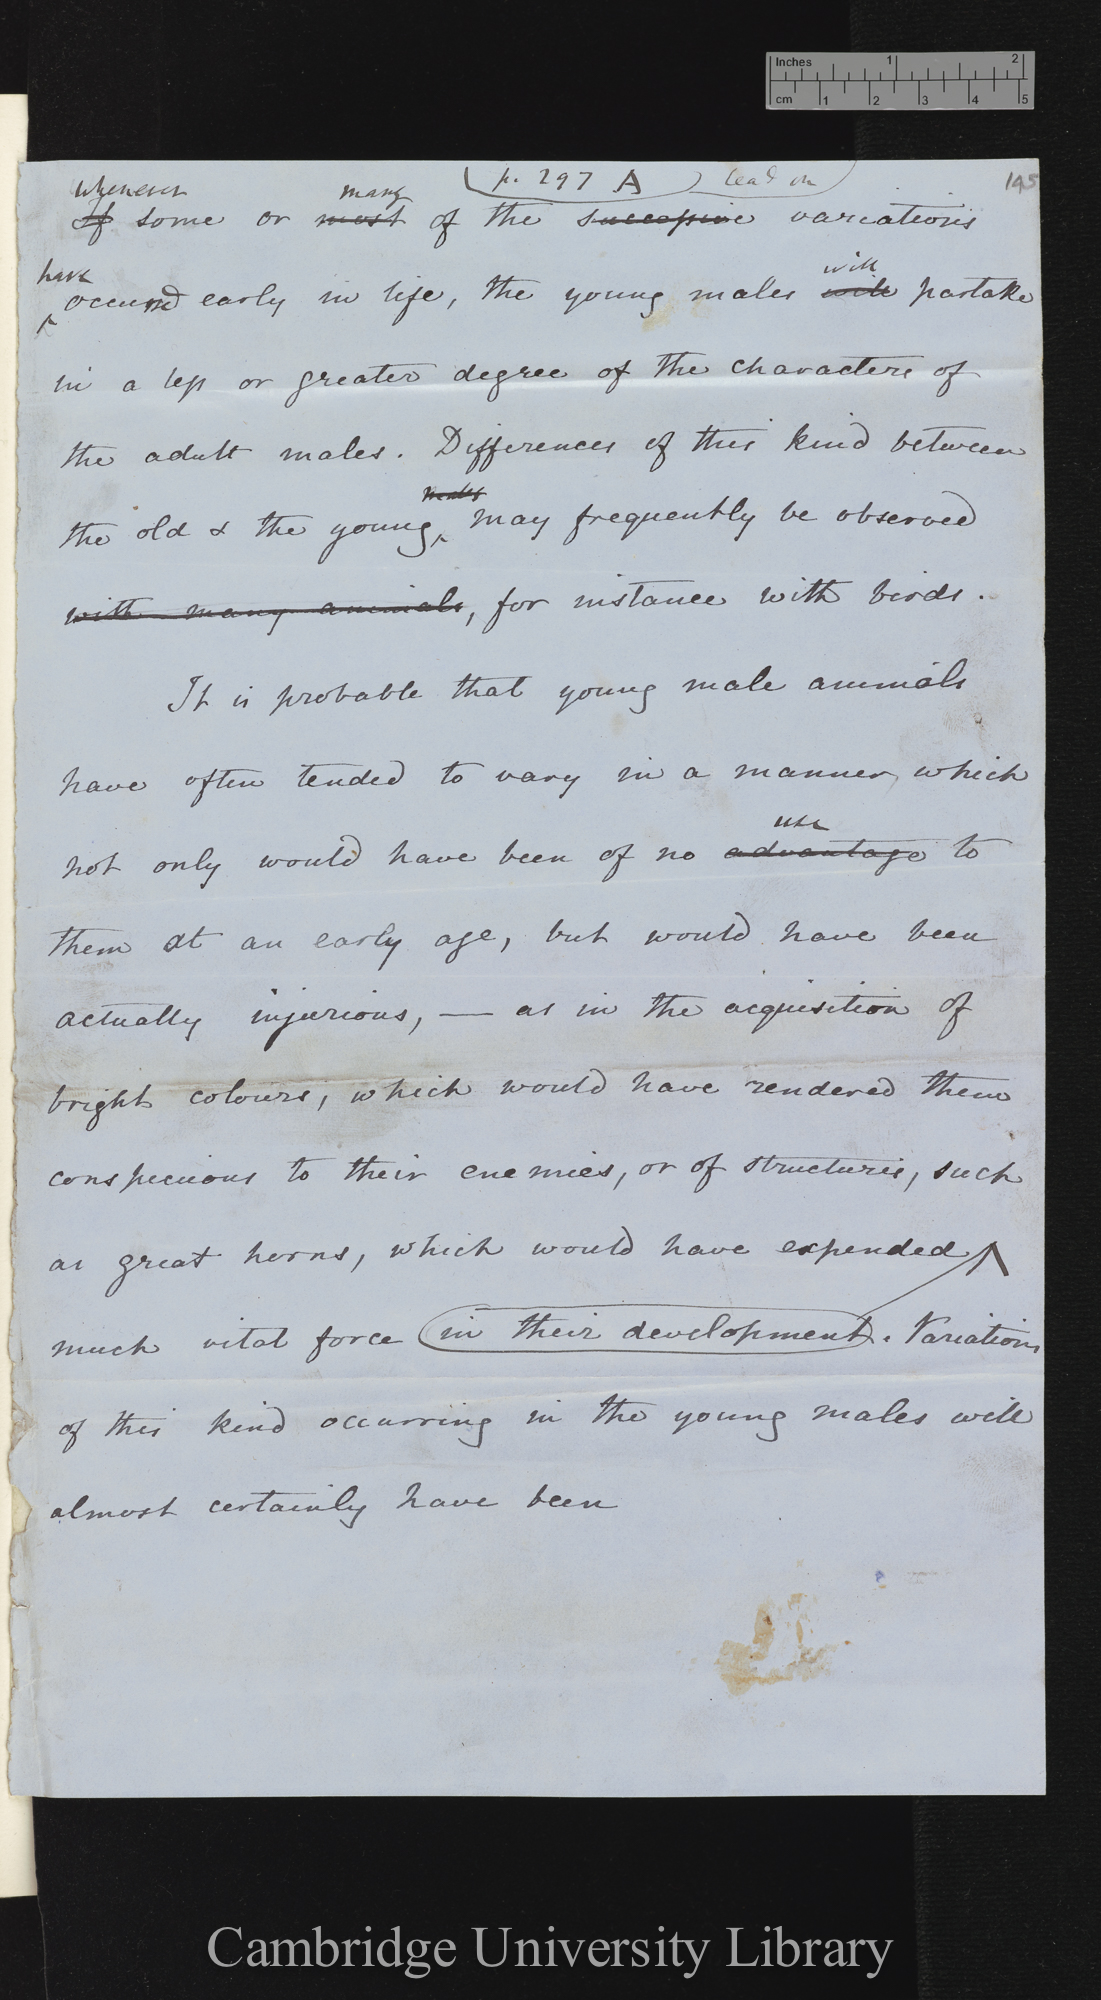 Inches 1 2
cm 1 2 3 4 5
p. 297 A lead on
195
whenever many
If some or most of the successive variations
have will
occurred early in life, the young males will partake
in a less or greater degree of the characters of
the adult males. Differences of this kind between
males
the old & the young may frequently be observed
with many animals, for instance with birds.
It is probable that young male animals
have often tended to vary in a manner, which
use
not only would have been of no advantage to
them at an early age, but would have been
actually injurious, — as in the acquisition of
bright colours, which would have rendered them
conspicuous to their enemies, or of structures, such
as great horns, which would have expended
much vital force in their development. Variations
of this kind occurring in the young males will
almost certainly have been
Cambridge University Library